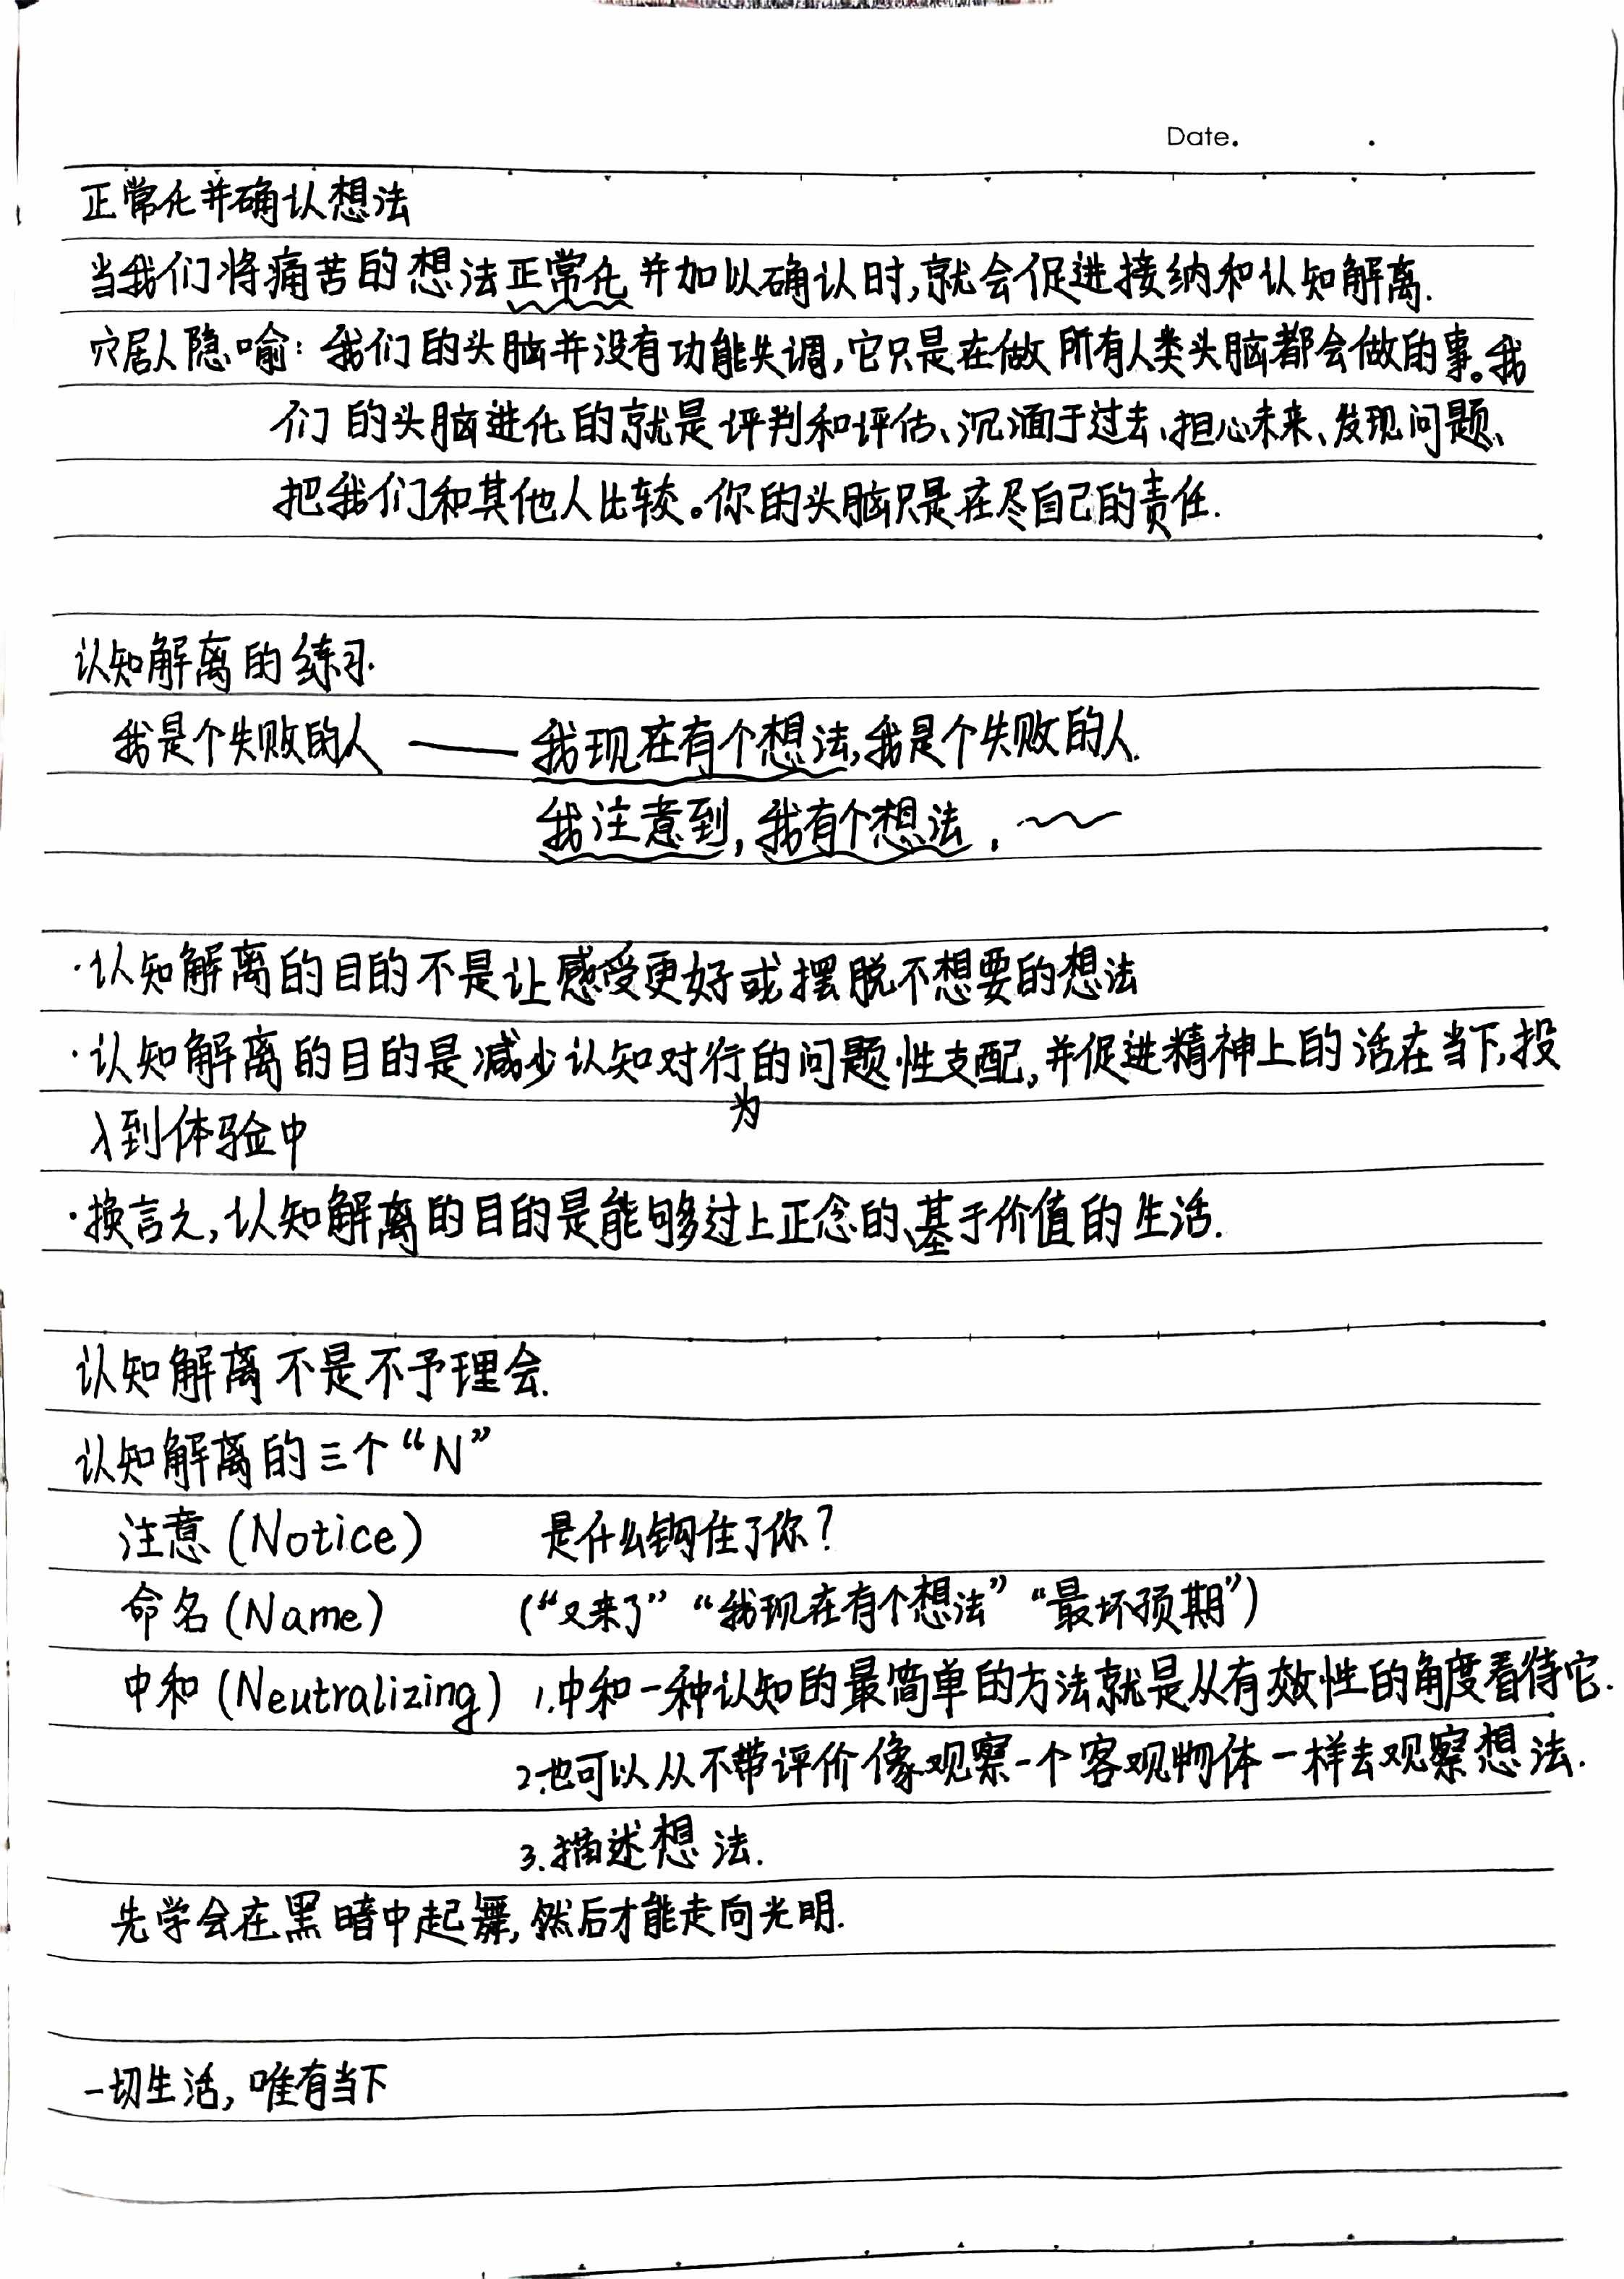 Date.
正常化并确认想法
当我们将痛苦的想法正常化并加以确认时,就会促进接纳和认知解离.
穴居人隐喻:我们的头脑并没有功能失调,它只是在做所有人类头脑都会做的事。我
们的头脑进化的就是评判和评估、沉湎于过去、担心未来、发现问题、
把我们和其他人比较。你的头脑只是在尽自己的责任.
认知解离的练习.
我是个失败的人 —— 我现在有个想法,我是个失败的人.
我注意到,我有个想法, ~~
·认知解离的目的不是让感受更好或摆脱不想要的想法
·认知解离的目的是减少认知对行为的问题性支配,并促进精神上的活在当下,投
入到体验中
·换言之,认知解离的目的是能够过上正念的、基于价值的生活.
认知解离不是不予理会.
认知解离的三个“N”
注意(Notice) 是什么钩住了你?
命名(Name) (“又来了”“我现在有个想法”“最坏预期”)
中和(Neutralizing) 1.中和一种认知的最简单的方法就是从有效性的角度看待它.
2.也可以从不带评价像观察一个客观物体一样去观察想法.
3.描述想法.
先学会在黑暗中起舞,然后才能走向光明.
一切生活,唯有当下